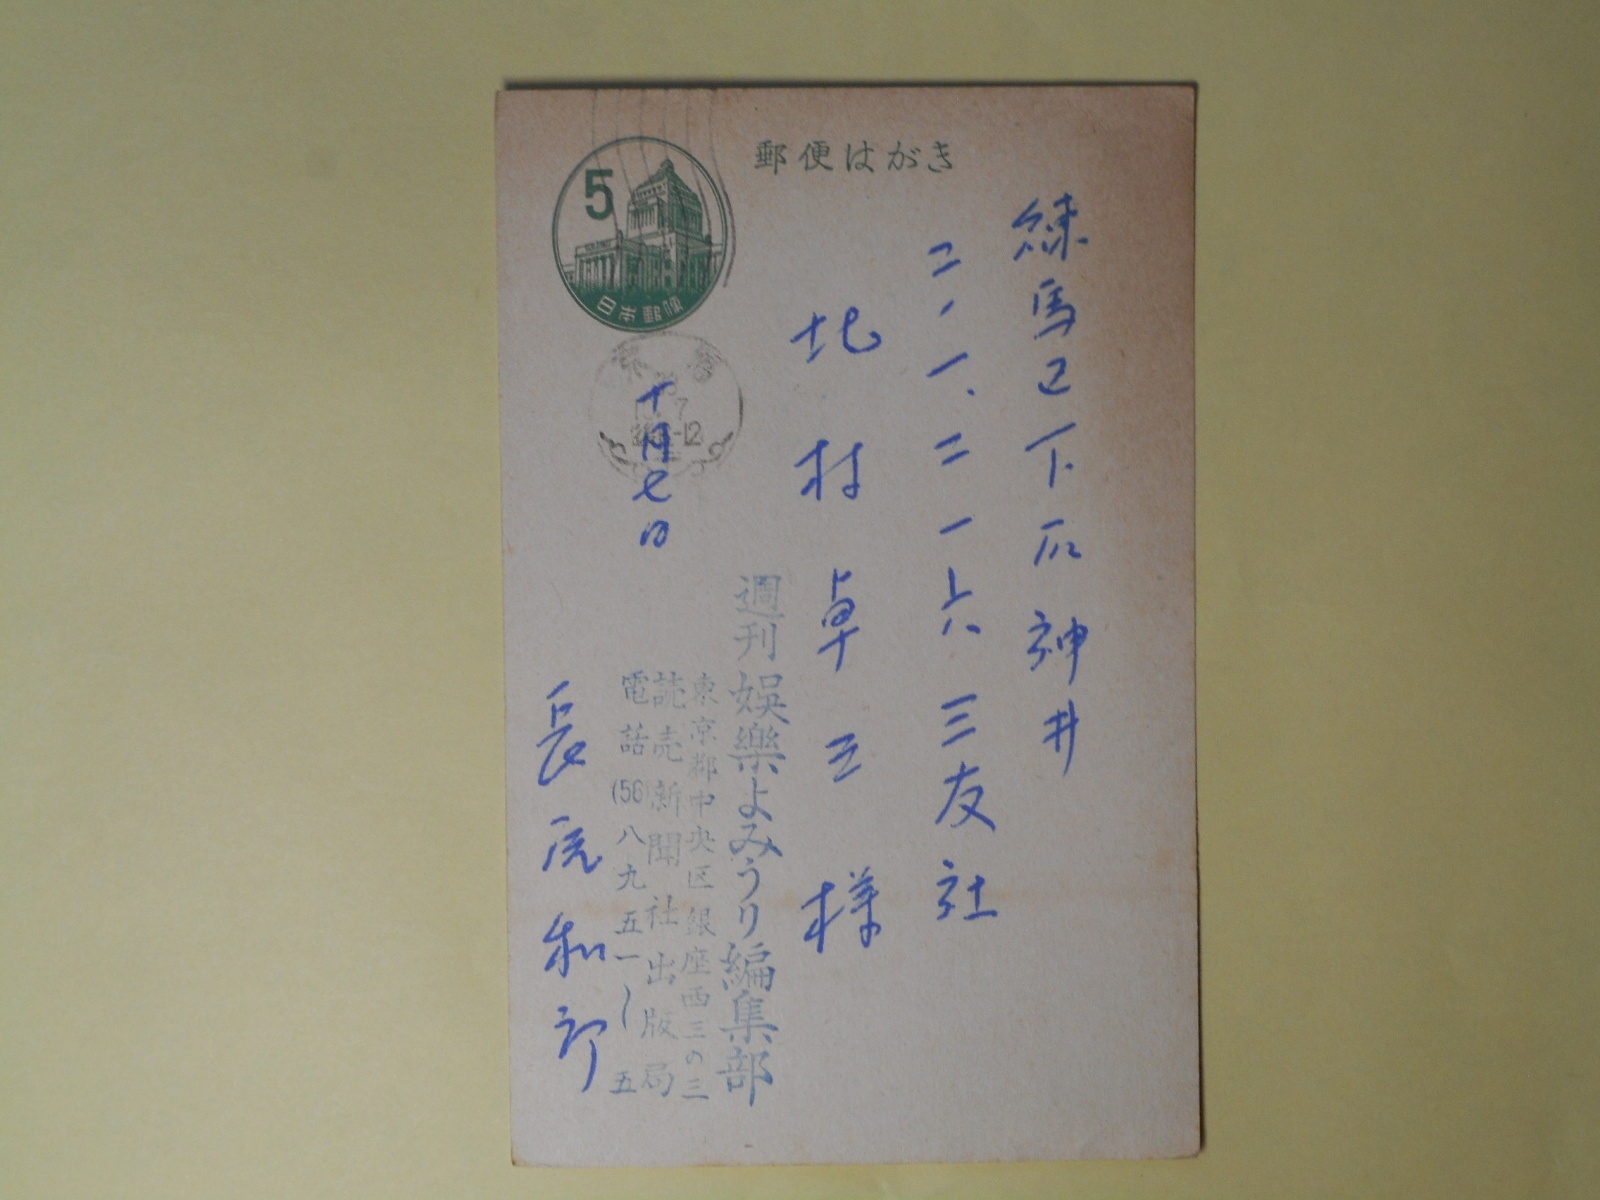 郵便はがき
5
日本郵便
練馬区下石神井
二ノ一、二一六 三友社
北村卓三様
十月七日
週刊娯楽よみうり編集部
東京都中央区銀座西三の三
読売新聞社出版局
電話(56)八九五一〜五